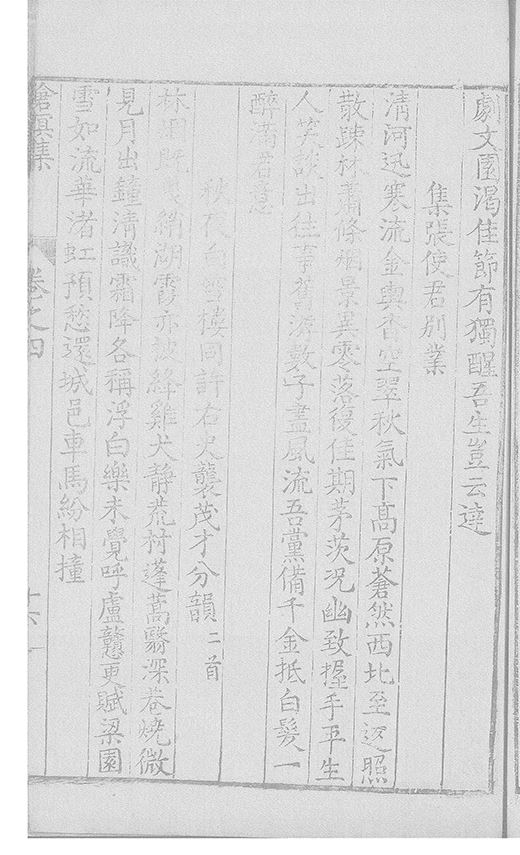 劇文園渴佳節有獨醒吾生豈云達
集張使君別業
清河迅寒流金輿杳空翠秋氣下高原蒼然西北至返照
散疎林蕭條烟景異零落復佳期茅茨况幽致握手平生
人笑談出往事舊游數子盡風流吾黨備千金抵白髮一
醉酒君意
秋夜白雪樓同許右史襲茂才分韻二首
林烟既曳綃湖霞亦披絳雞犬靜荒村蓬蒿翳深巷燒微
見月出鐘清識霜降各稱浮白樂未覺呼盧戇更賦梁園
雪如流華渚虹預愁還城邑車馬紛相撞
滄溟集
卷之四